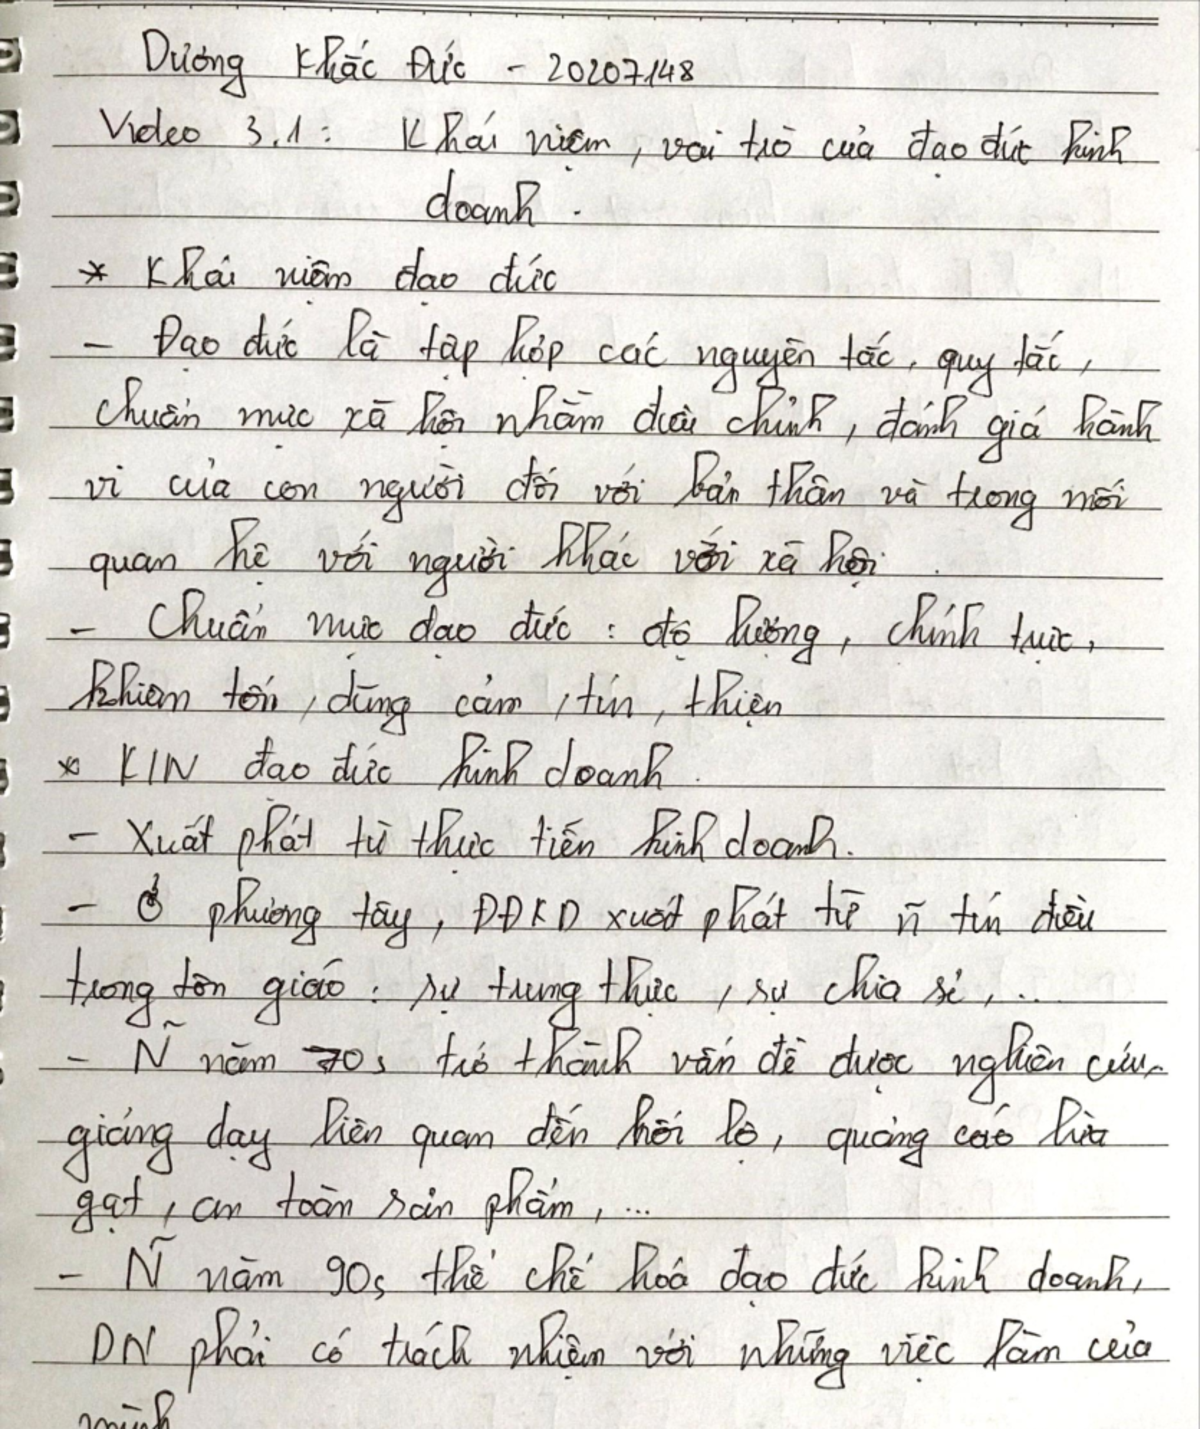 Dương Khắc Đức - 20207148
Video 3.1: Khái niệm, vai trò của đạo đức kinh
doanh.
* Khái niệm đạo đức
- Đạo đức là tập hợp các nguyên tắc, quy tắc,
chuẩn mực xã hội nhằm điều chỉnh, đánh giá hành
vi của con người đối với bản thân và trong mối
quan hệ với người khác với xã hội.
- Chuẩn mực đạo đức: độ lượng, chính trực,
khiêm tốn, dũng cảm, tín, thiện
* K/N đạo đức kinh doanh.
- Xuất phát từ thực tiến kinh doanh.
- Ở phương tây, ĐĐKD xuất phát từ ñ tín điều
trong tôn giáo: sự trung thực, sự chia sẻ, ...
- Ñ năm 70s trở thành vấn đề được nghiên cứu,
giảng dạy liên quan đến hối lộ, quảng cáo lừa
gạt, an toàn sản phẩm, ...
- Ñ năm 90s thể chế hoá đạo đức kinh doanh,
DN phải có trách nhiệm với những việc làm của
mình